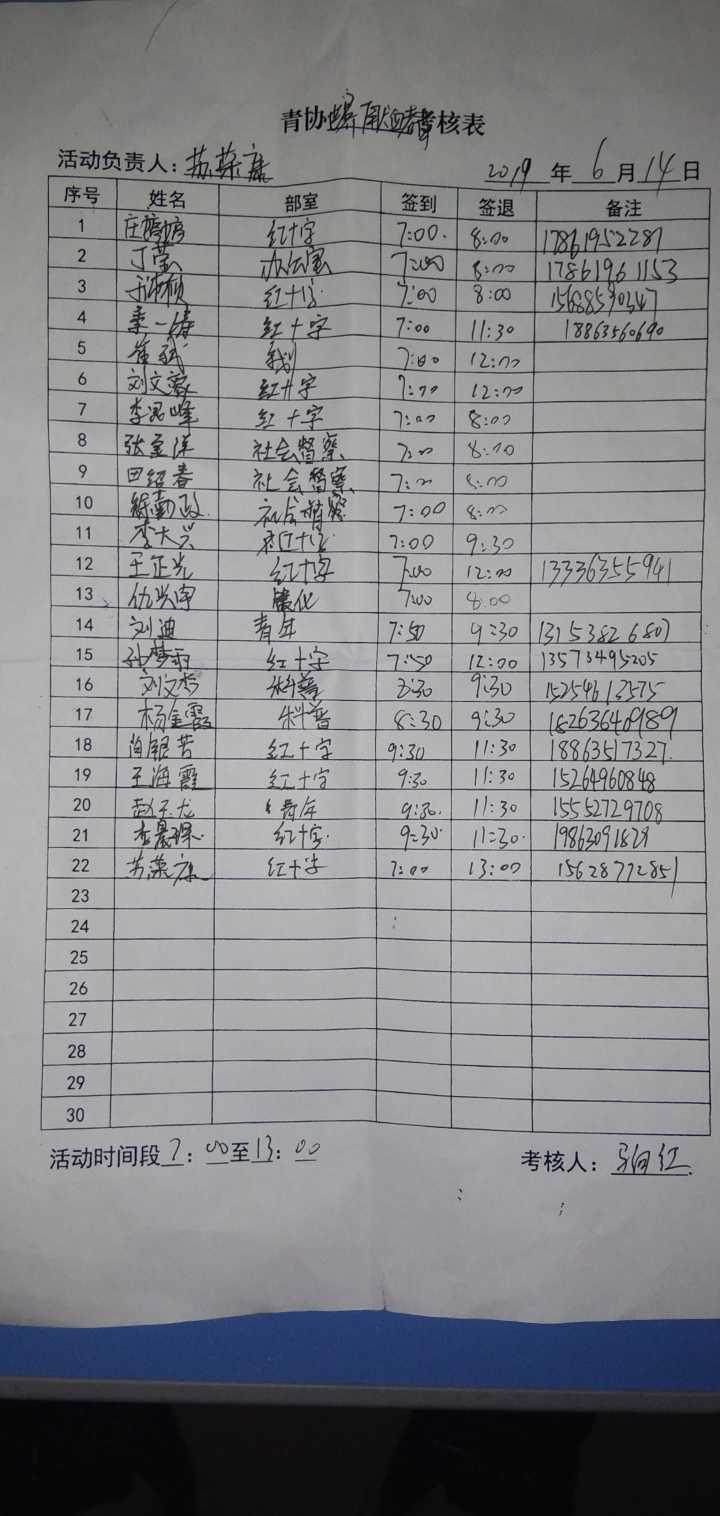 青协世界献血者日考核表
活动负责人：苏荣康 2019年6月14日
序号 姓名 部室 签到 签退 备注
1 红十字 7:00 8:00 17861952287
2 丁莹 办公室 7:00 8:00 17861961153
3 红十字 7:00 8:00
4 红十字 7:00 11:30 18863560690
5 7:00 12:00
6 刘文蓉 红十字 7:00 12:00
7 红十字 7:00 8:00
8 社会督察 7:00 8:00
9 田绍春 社会督察 7:00 8:00
10 社会督察 7:00 8:00
11 李大兴 红十字 7:00 9:30
12 王正光 红十字 7:00 12:00 13336355941
13 7:00 8:00
14 刘迪 青年 7:50 9:30 13153826807
15 孙梦雨 红十字 7:50 12:00 13573495205
16 科普 8:30 9:30 15254613575
17 杨金霞 科普 8:30 9:30 18263640989
18 红十字 9:30 11:30 18863517327
19 王海霞 红十字 9:30 11:30 15264960848
20 赵子龙 青年 9:30 11:30 15552729708
21 红十字 9:30 11:30 19863091829
22 苏荣康 红十字 7:00 13:00 15628772851
23
24
25
26
27
28
29
30
活动时间段7：00至13：00 考核人：